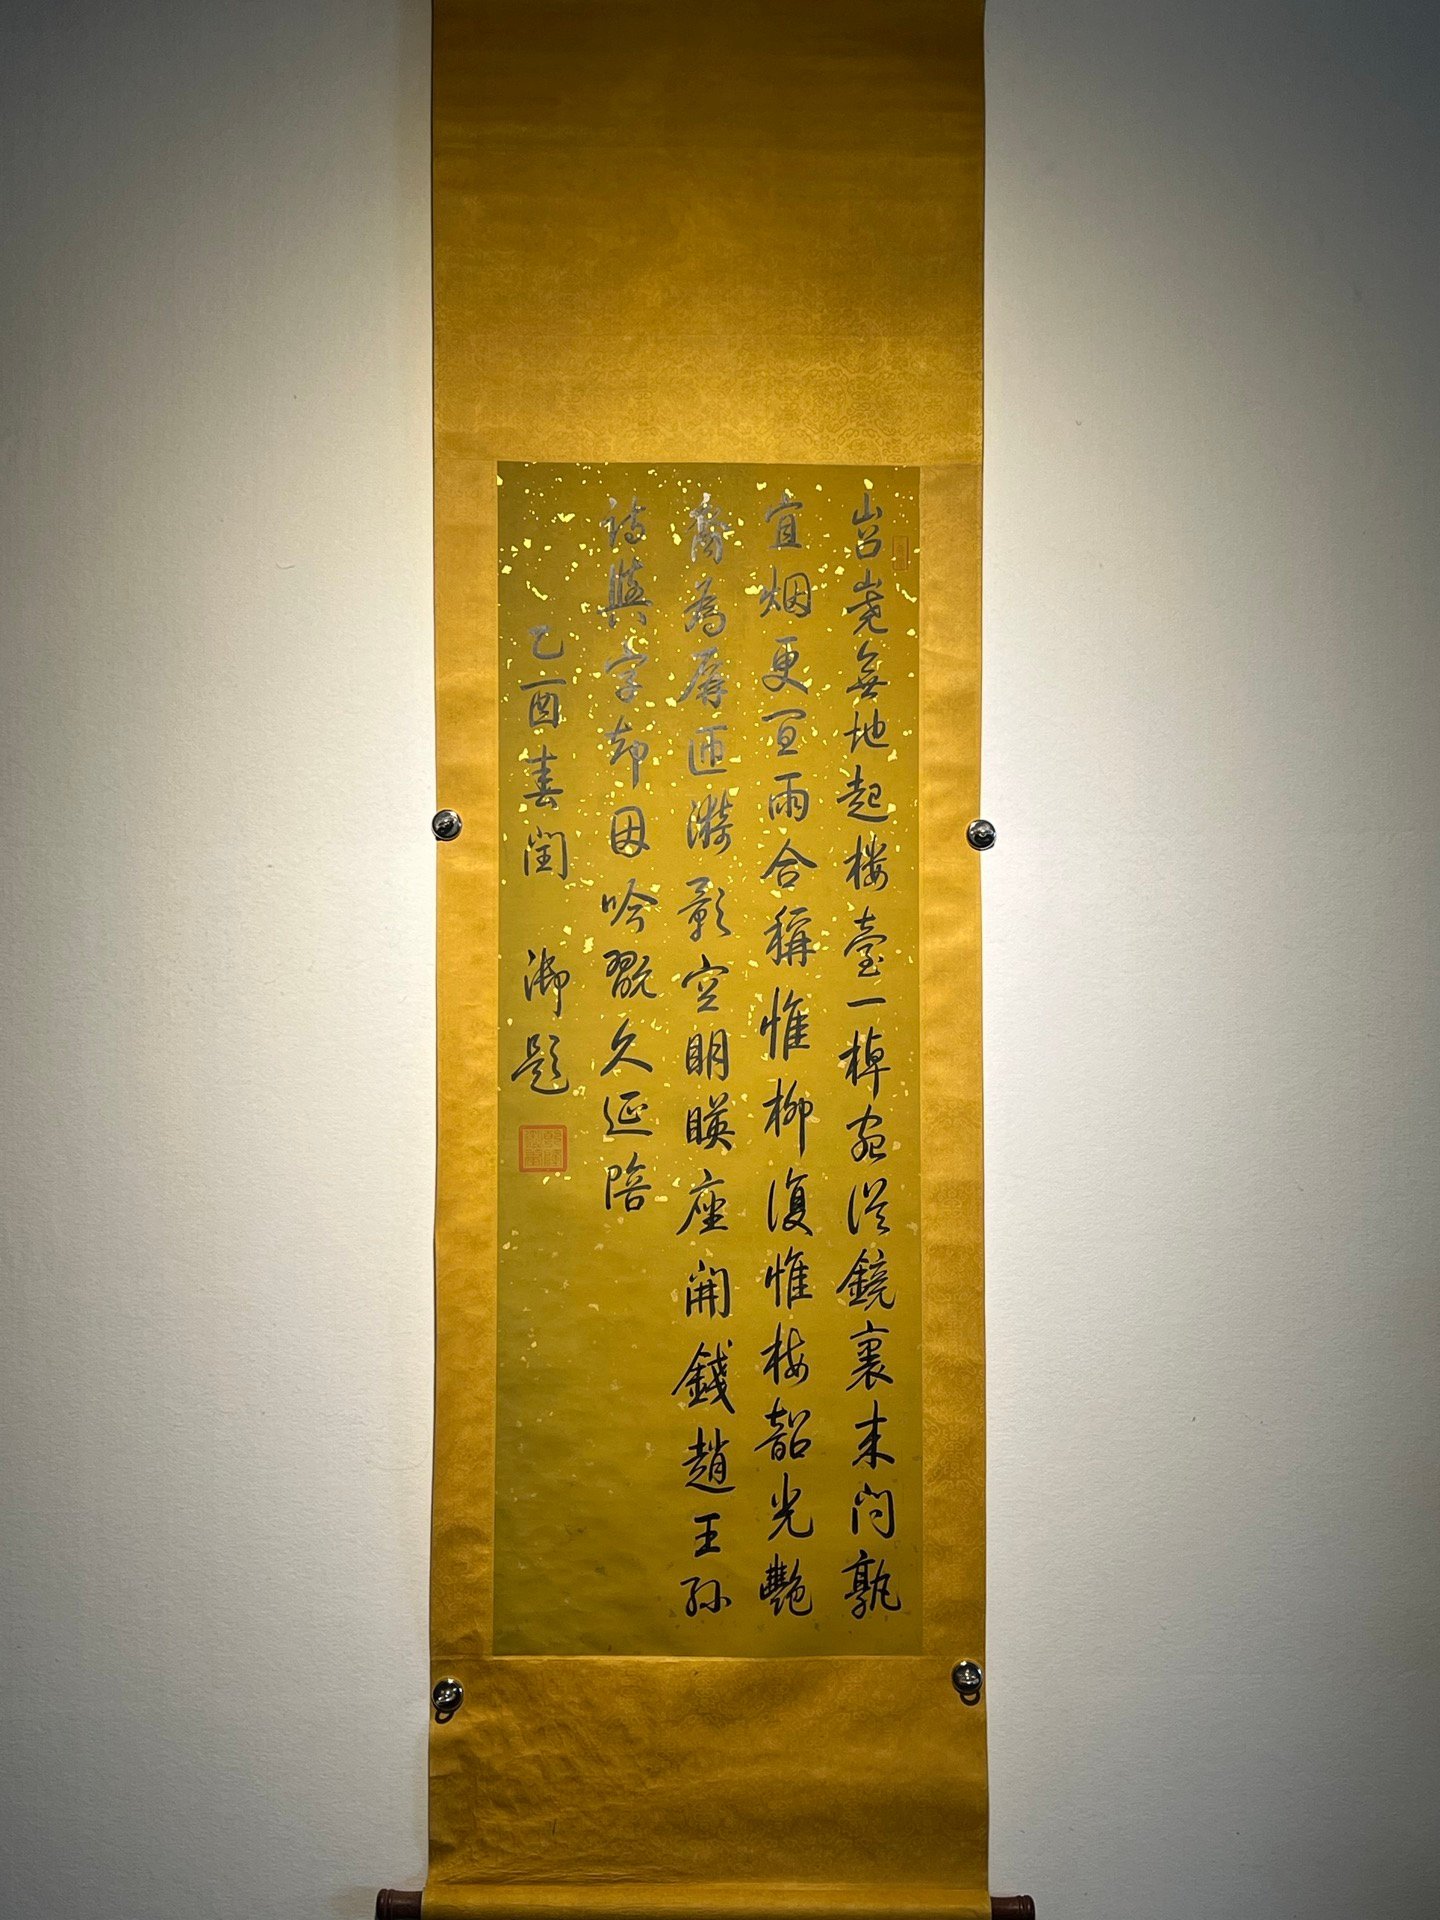 岧嶢無地起楼臺一棹宛從鏡裏来問孰
宜烟更宜雨合稱惟柳復惟梅韶光艷
裔為屏匝漪影空明暎座開錢趙王孫
詩與字却因吟翫久延陪
乙酉春閏 御題